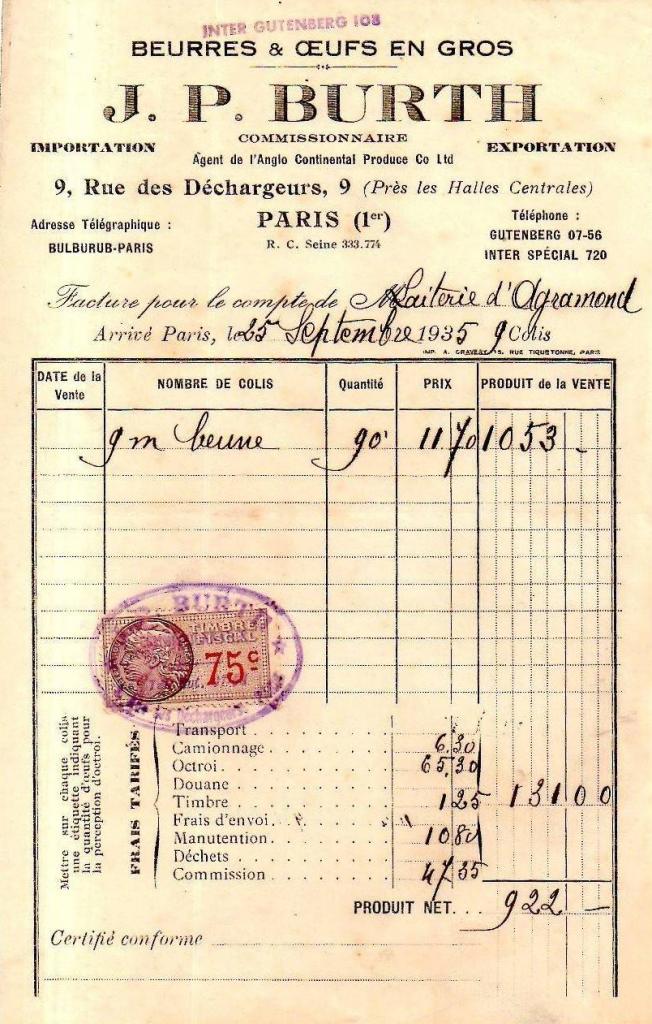 INTER GUTENBERG 103
BEURRES & ŒUFS EN GROS
J. P. BURTH
COMMISSIONNAIRE
IMPORTATION
EXPORTATION
Agent de l'Anglo Continental Produce Co Ltd
9, Rue des Déchargeurs, 9 (Près les Halles Centrales)
Adresse Télégraphique :
BULBURUB-PARIS
PARIS (1er)
R. C. Seine 333.774
Téléphone :
GUTENBERG 07-56
INTER SPÉCIAL 720
Facture pour le compte de Laiterie d'Agramond
Arrivé Paris, le 25 Septembre 1935 9 Colis
IMP. A. 15, RUE TIQUETONNE, PARIS
DATE de la Vente NOMBRE DE COLIS Quantité PRIX PRODUIT de la VENTE
9 m beurre 90 11 70 1053 -
BURTH
TIMBRE
FISCAL
75c
Mettre sur chaque colis
une étiquette indiquant
la quantité d'œufs pour
la perception d'octroi.
FRAIS TARIFÉS
Transport
Camionnage 6.30
Octroi 65.30
Douane
Timbre 1 25 131 00
Frais d'envoi
Manutention 10 80
Déchets
Commission 47 35
PRODUIT NET... 922 -
Certifié conforme